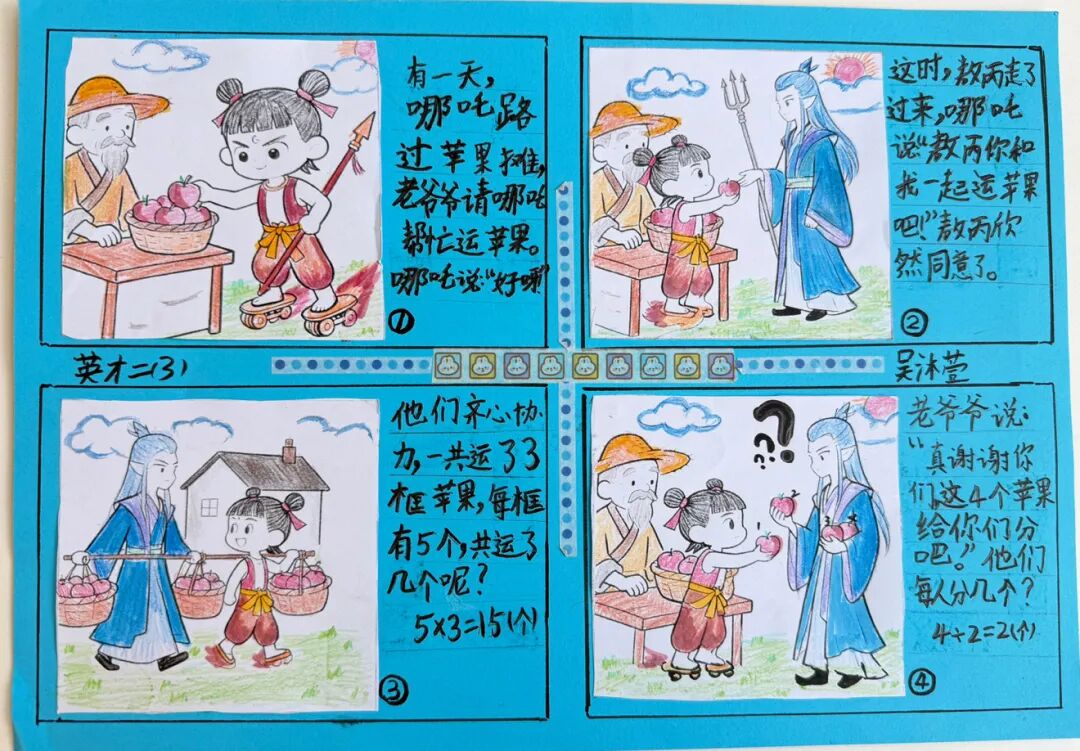 有一天,
哪吒路
过苹果摊,
老爷爷请哪吒
帮忙运苹果。
哪吒说:“好嘞!”
①
这时,敖丙走了
过来,哪吒
说“敖丙你和
我一起运苹果
吧!”敖丙欣
然同意了。
②
英才二(3)
吴沐萱
他们齐心协
力,一共运了3
框苹果,每框
有5个,共运了
几个呢?
5×3=15(个)
③
???
!
老爷爷说:
“真谢谢你
们,这4个苹果
给你们分
吧!”他们
每人分几个?
4÷2=2(个)
④